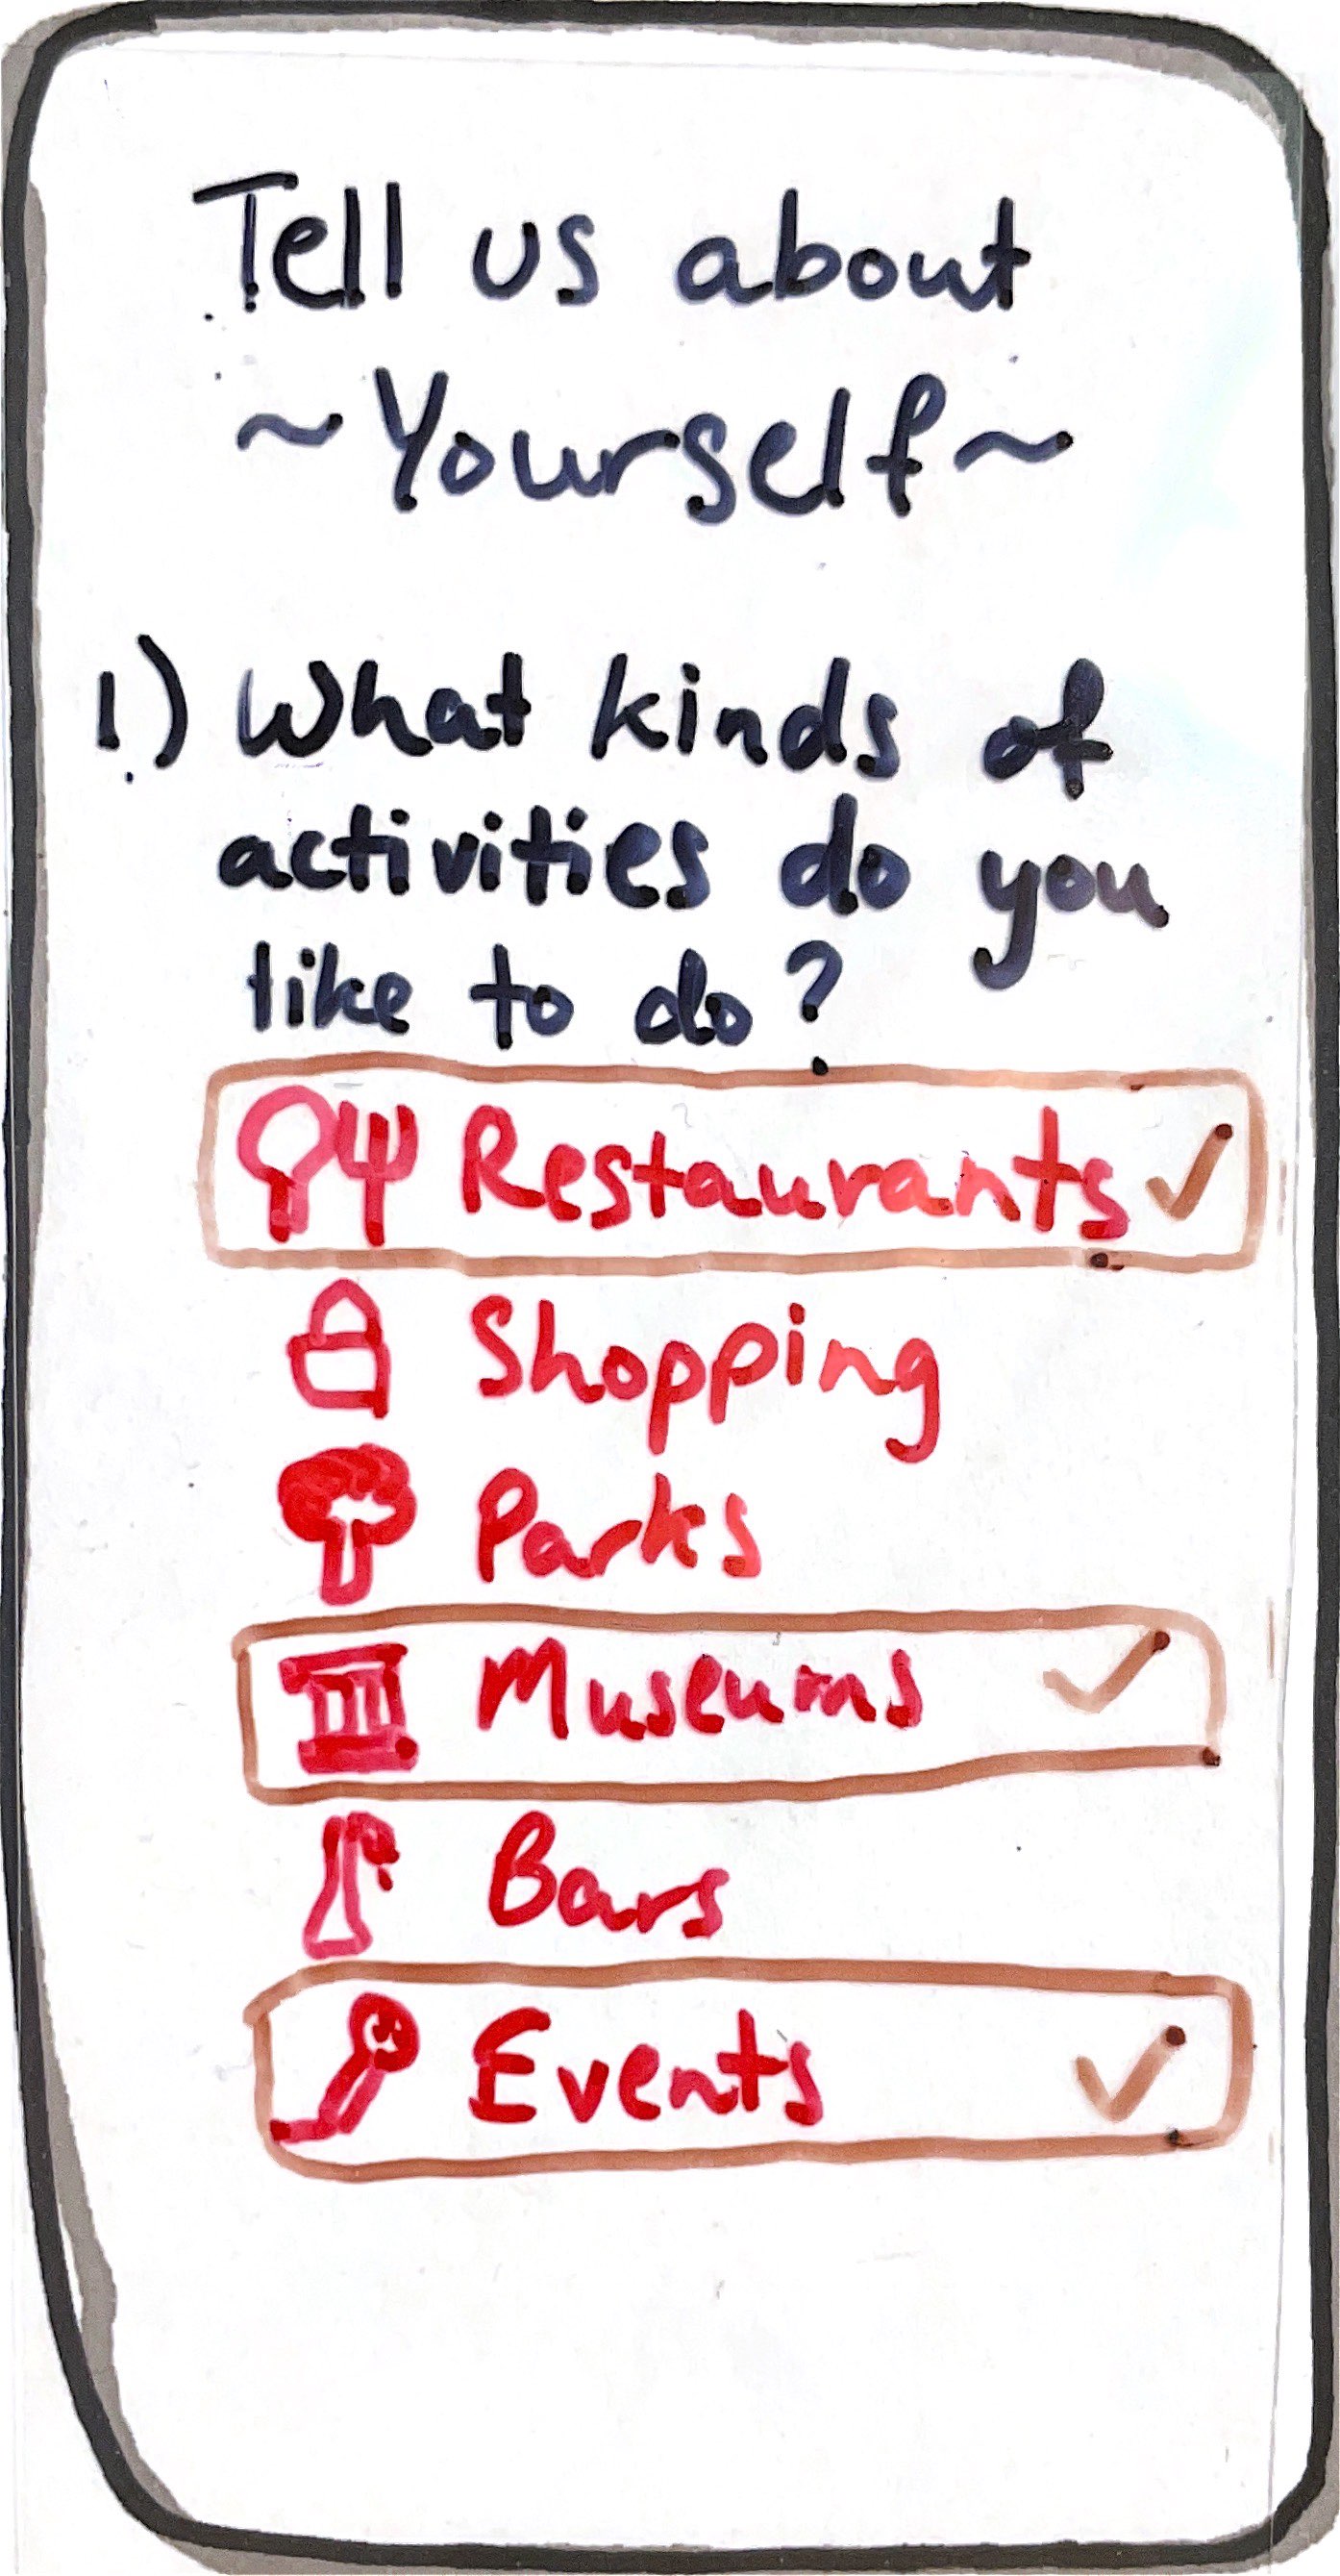 Tell us about
~Yourself~
1) What kinds of
activities do you
like to do?
Restaurants ✓
Shopping
Parks
Museums ✓
Bars
Events ✓